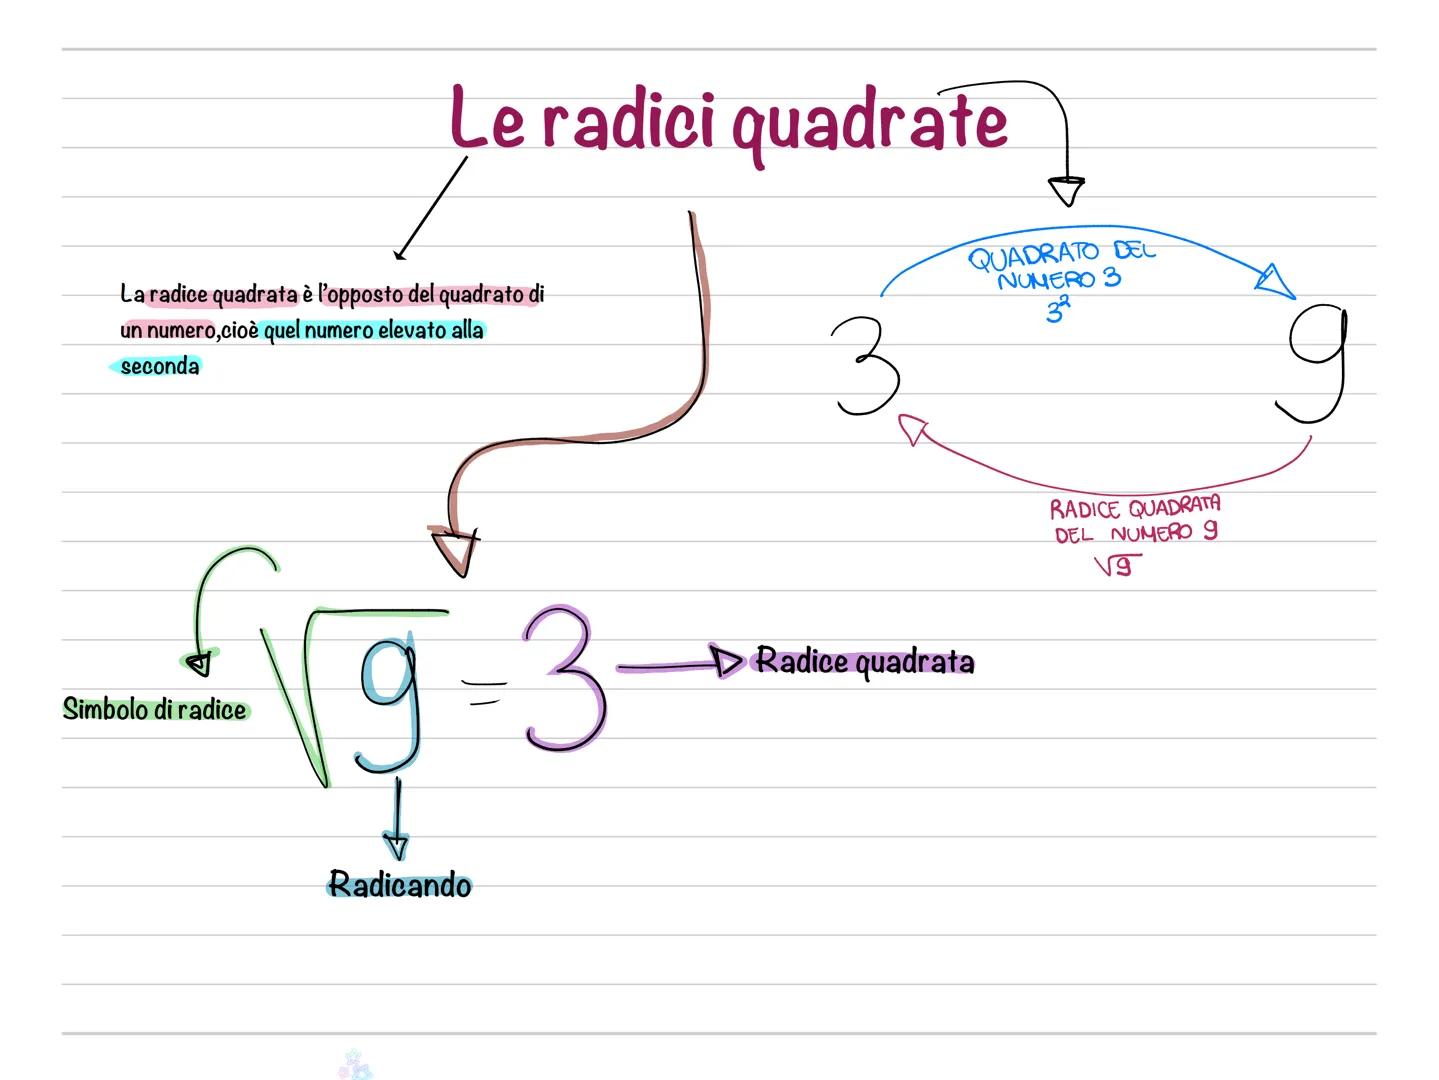 Le radici quadrate
La radice quadrata è l'opposto del quadrato di
un numero,cioè quel numero elevato alla
seconda
QUADRATO DEL
NUMERO 3
3²
3
9
RADICE QUADRATA
DEL NUMERO 9
√9
√9 = 3
Radice quadrata
Simbolo di radice
Radicando